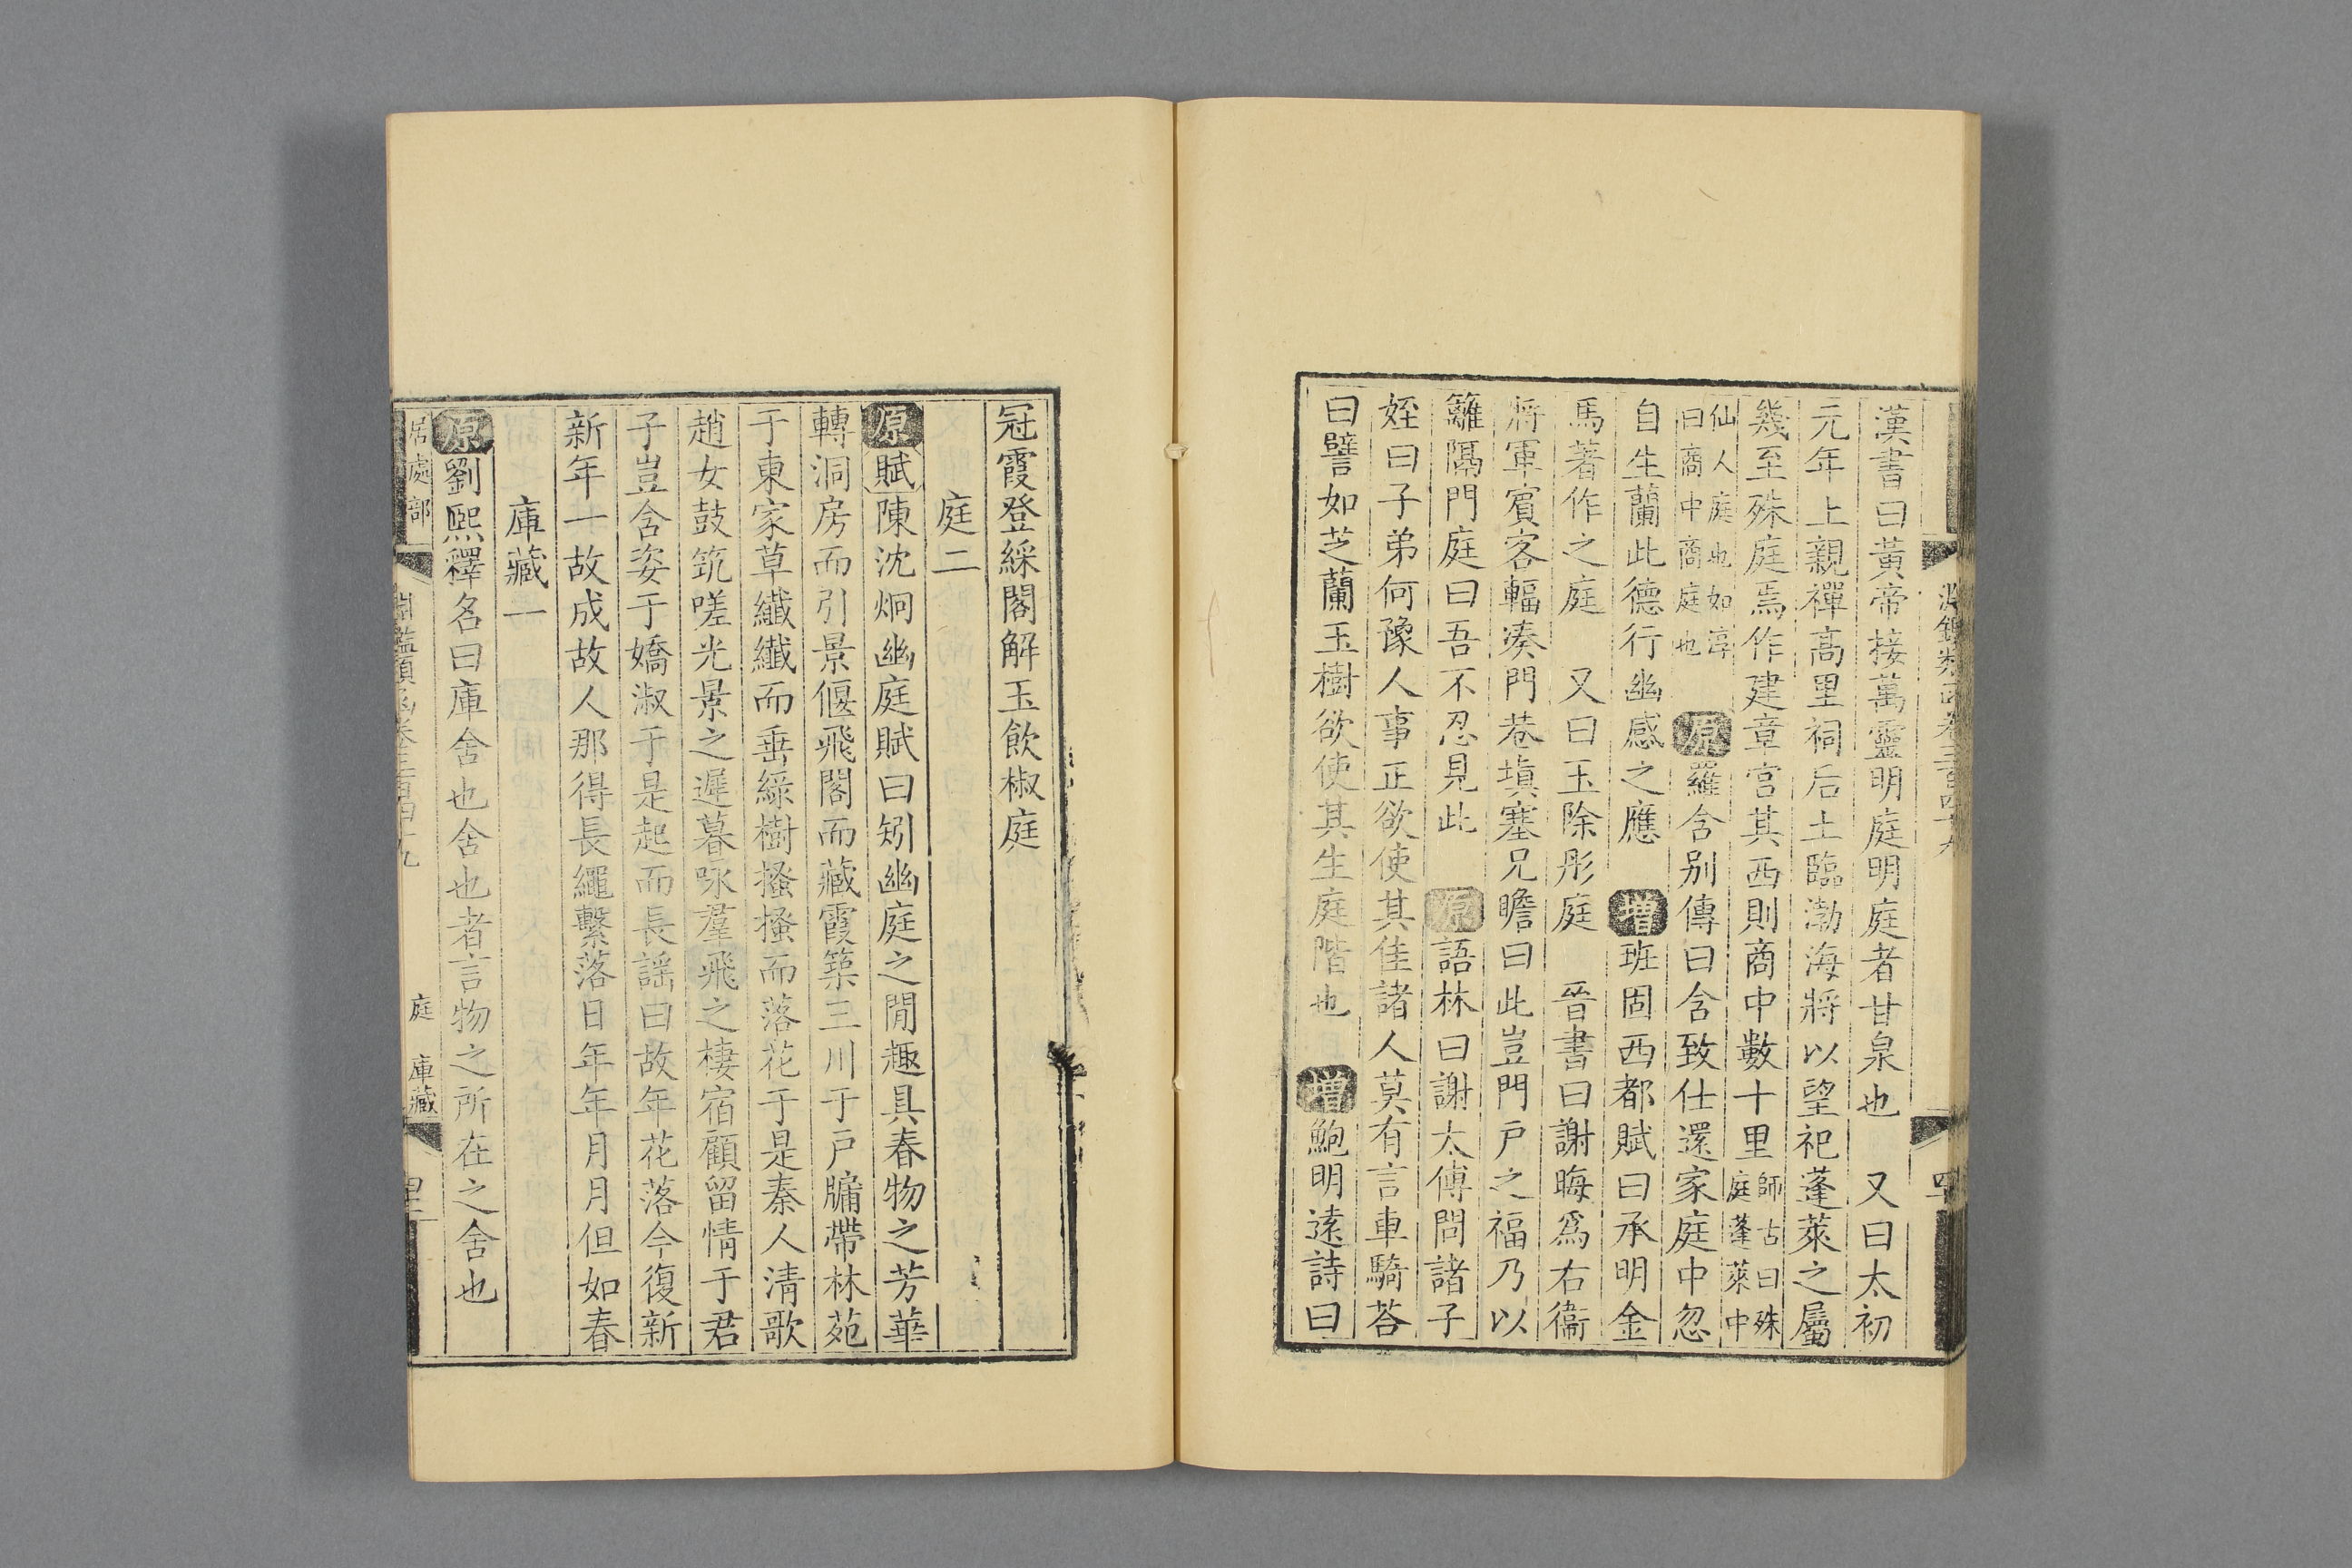 漢書曰黃帝接萬靈明庭明庭者甘泉也　又曰太初
元年上親禪高里祠后土臨渤海將以望祀蓬萊之屬
幾至殊庭焉作建章宮其西則商中數十里師古曰殊庭蓬萊中
仙人庭也如淳曰商中商庭也　原羅含別傳曰含致仕還家庭中忽
自生蘭此德行幽感之應　增班固西都賦曰承明金
馬著作之庭　又曰玉除彤庭　晉書曰謝晦爲右衞
將軍賓客輻凑門巷塡塞兄瞻曰此豈門戶之福乃以
籬隔門庭曰吾不忍見此　原語林曰謝太傅問諸子
姪曰子弟何豫人事正欲使其佳諸人莫有言車騎荅
曰譬如芝蘭玉樹欲使其生庭階也　增鮑明遠詩曰
冠霞登綵閣解玉飲椒庭
庭二
原賦陳沈炯幽庭賦曰矧幽庭之閒趣具春物之芳華
轉洞房而引景偃飛閣而藏霞築三川于戶牖帶林苑
于東家草纖纖而垂綠樹搔搔而落花于是秦人清歌
趙女鼓筑嗟光景之遲暮咏羣飛之棲宿顧留情于君
子豈含姿于嬌淑于是起而長謡曰故年花落今復新
新年一故成故人那得長繩繫落日年年月月但如春
庫藏一
原劉熙釋名曰庫舍也舍也者言物之所在之舍也
居處部
淵鑑類函卷三百四十九
庭　庫藏